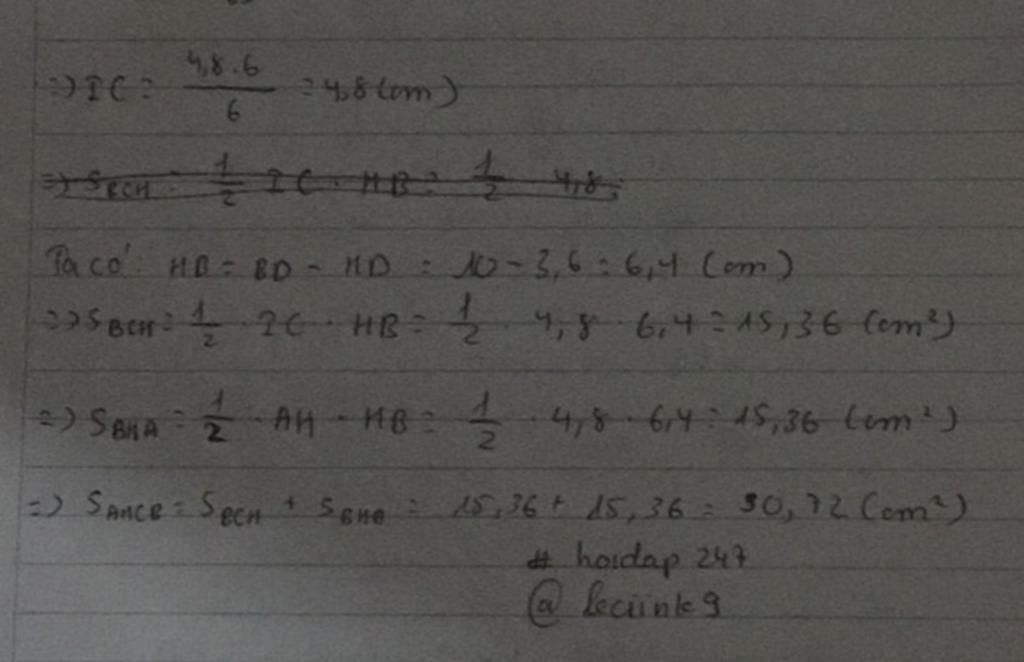 => IC = 4,8.6/6 = 4,8 (cm)
=> S_BCH = 1/2 IC . HB = 1/2 4,8
Ta có: HB = BD - HD = 10 - 3,6 = 6,4 (cm)
=> S_BCH = 1/2 . IC . HB = 1/2 . 4,8 . 6,4 = 15,36 (cm²)
=> S_BHA = 1/2 . AH . HB = 1/2 . 4,8 . 6,4 = 15,36 (cm²)
=> S_AHCB = S_BCH + S_BHA = 15,36 + 15,36 = 30,72 (cm²)
# hoidap 247